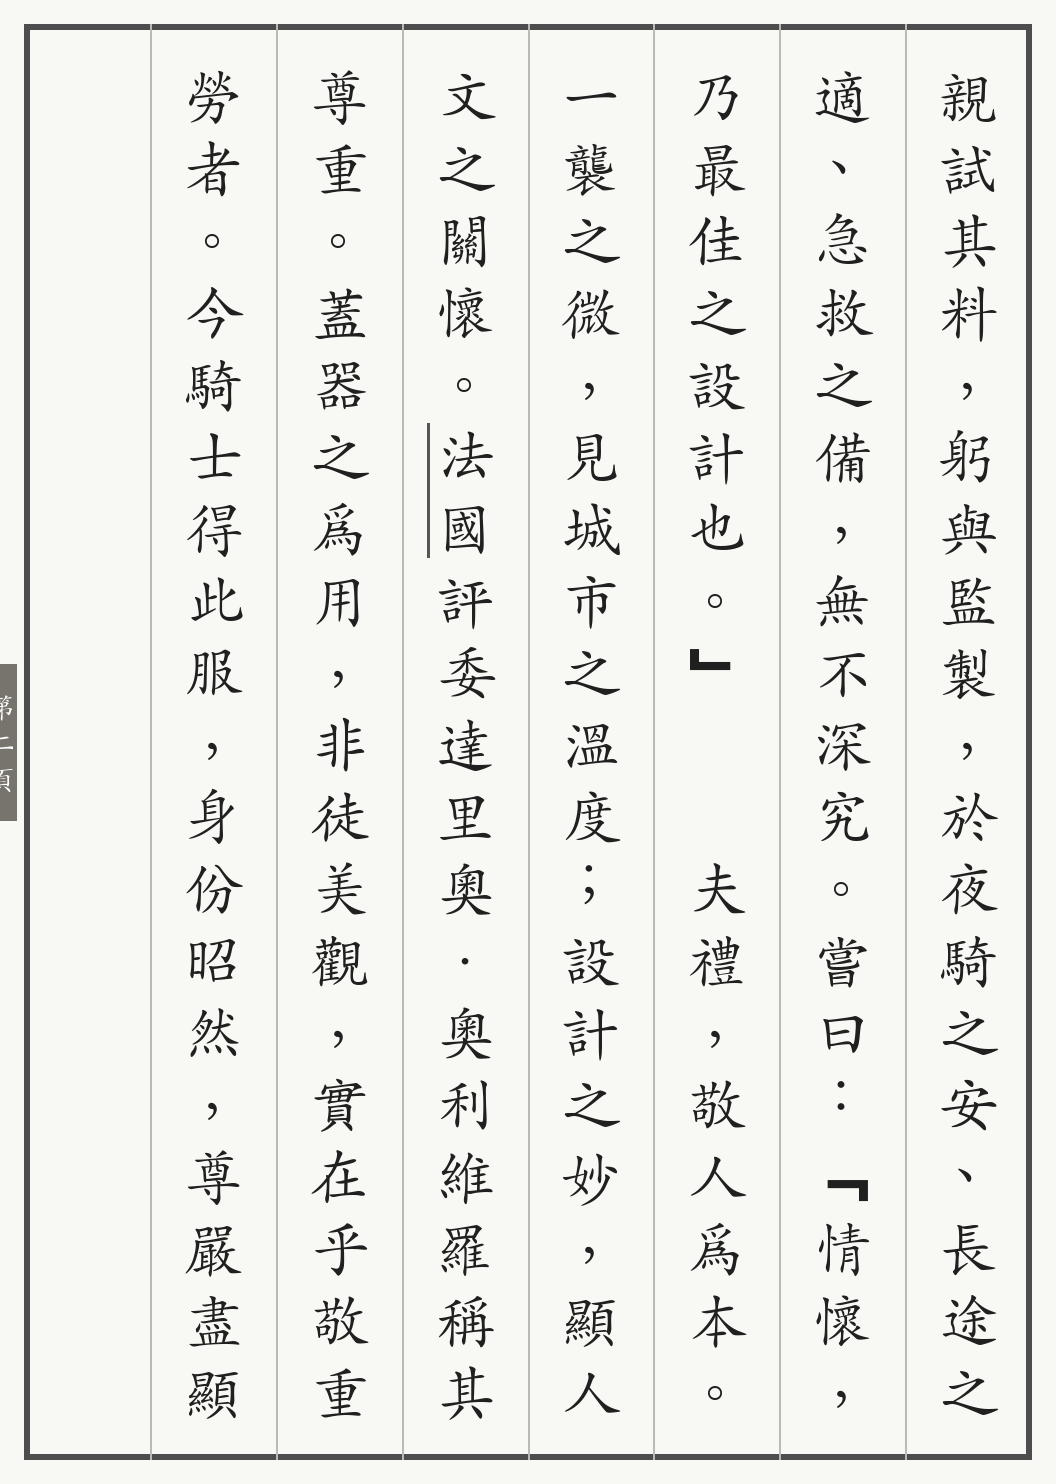 親試其料，躬與監製，於夜騎之安、長途之
適、急救之備，無不深究。嘗曰：『情懷，
乃最佳之設計也。』　　夫禮，敬人爲本。
一襲之微，見城市之溫度；設計之妙，顯人
文之關懷。法國評委達里奧·奧利維羅稱其
尊重。蓋器之爲用，非徒美觀，實在乎敬重
勞者。今騎士得此服，身份昭然，尊嚴盡顯
第二頁